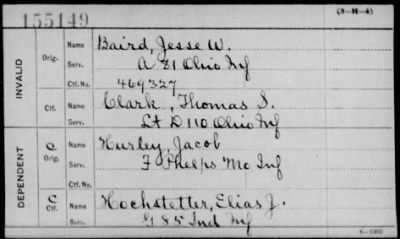 155149
(3-H-4)
INVALID
Orig.
Name Baird, Jesse W.
Serv. A 81 Ohio Inf
Ctf. No. 469327
Ctf.
Name Clark, Thomas S.
Serv. Lt D 110 Ohio Inf
DEPENDENT
C
Orig.
Name Hurley, Jacob
Serv. F Phelps Mo Inf
Ctf. No.
C
Ctf.
Name Hochstetter, Elias J.
Serv. G 85 Ind Inf